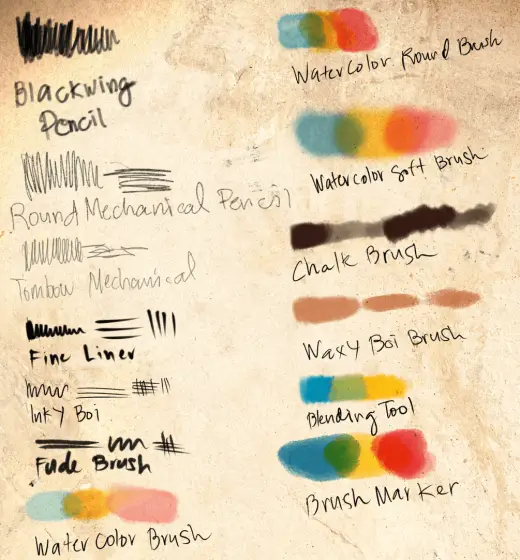 Blackwing
Pencil
Round Mechanical Pencil
Tombow Mechanical
Fine Liner
Inky Boi
Fude Brush
Water Color Brush
Watercolor Round Brush
Watercolor Soft Brush
Chalk Brush
Waxy Boi Brush
Blending Tool
Brush Marker